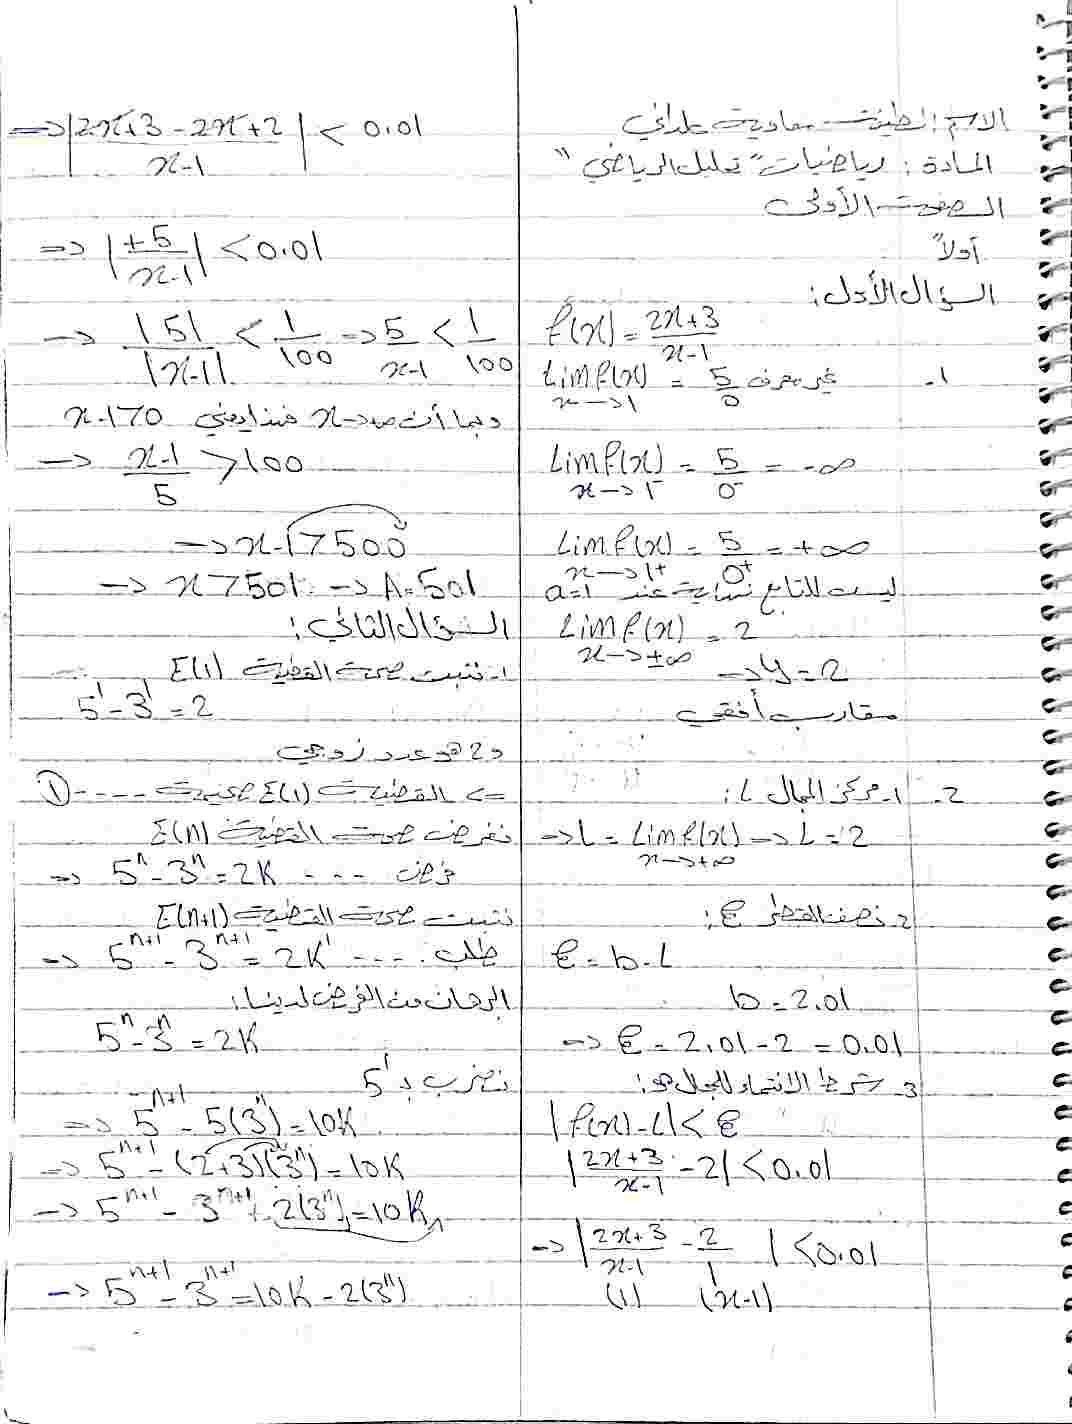 المادة : رياضيات "تحليل الرياضي"
الصفحة الأولى
أولاً
السؤال الأول:
f(x) = (2x+3)/(x-1)
1- lim f(x) = 5/0 غير معرف
x→1
lim f(x) = 5/0⁻ = -∞
x→1⁻
lim f(x) = 5/0⁺ = +∞
x→1⁺
ليست للتابع نهاية عند a=1
lim f(x) = 2
x→±∞
→ y = 2
مقارب أفقي
2- 1- مركز المجال L:
→ L = lim f(x) → L = 2
x→+∞
2- نصف القطر ε:
ε = b - L
b = 2.01
→ ε = 2.01 - 2 = 0.01
3- شرط الانتماء للمجال هو:
|f(x) - L| < ε
|(2x+3)/(x-1) - 2| < 0.01
→ |(2x+3)/(x-1) - 2/1| < 0.01
(1) (x-1)
⇒ |(2x+3-2x+2)/(x-1)| < 0.01
⇒ |+5/(x-1)| < 0.01
→ |5|/|x-1| < 1/100 ⇒ 5/(x-1) < 1/100
وبما أن x→∞ فهذا يعني x-1>0
→ (x-1)/5 > 100
→ x-1 > 500
→ x > 501 → A = 501
السؤال الثاني:
1- نثبت صحة القضية E(1)
5¹ - 3¹ = 2
و 2 هو عدد زوجي
=> القضية E(1) صحيحة ---- ①
نفرض صحة القضية E(n)
→ 5ⁿ - 3ⁿ = 2K ---- فرض
نثبت صحة القضية E(n+1)
→ 5ⁿ⁺¹ - 3ⁿ⁺¹ = 2K' ---- طلب
البرهان من الفرض لدينا:
5ⁿ - 3ⁿ = 2K
نضرب بـ 5¹
→ 5ⁿ⁺¹ - 5(3ⁿ) = 10K
→ 5ⁿ⁺¹ - (2+3)(3ⁿ) = 10K
→ 5ⁿ⁺¹ - 3ⁿ⁺¹ + 2(3ⁿ) = 10K
→ 5ⁿ⁺¹ - 3ⁿ⁺¹ = 10K - 2(3ⁿ)